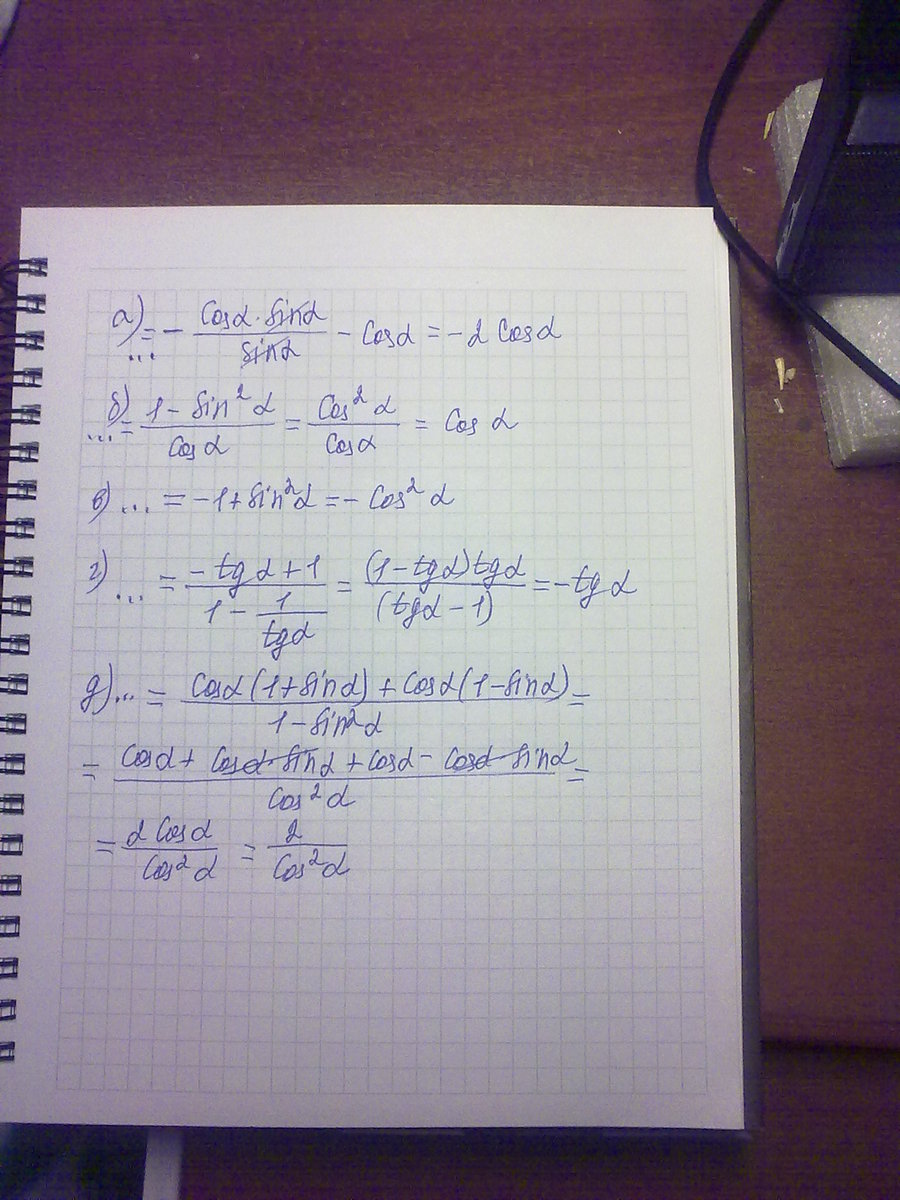 а) ... = - (cosα · sinα)/(sinα) - cosα = -2 cosα
б) ... = (1 - sin²α)/(cosα) = (cos²α)/(cosα) = cos α
в) ... = -1 + sin²α = - cos² α
г) ... = (-tgα + 1)/(1 - 1/(tgα)) = ((1 - tgα)tgα)/((tgα - 1)) = -tgα
д) ... = (cosα(1 + sinα) + cosα(1 - sinα))/(1 - sin²α) =
= (cosα + cosα·sinα + cosα - cosα·sinα)/(cos²α) =
= (2 cosα)/(cos²α) = 2/(cos²α)